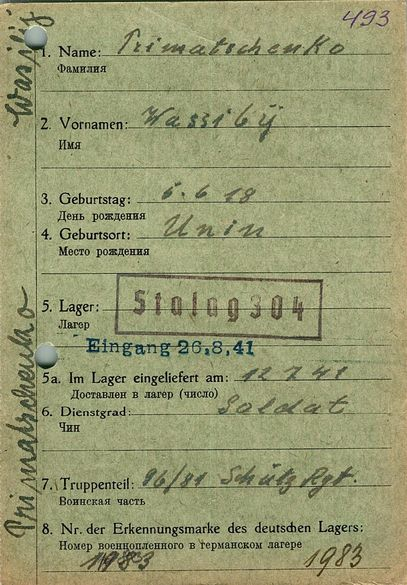 493
1. Name: Primatschenko
Фамилия
2. Vornamen: Wassilÿ
Имя
3. Geburtstag: 5.6.18
День рождения
4. Geburtsort: Unin
Место рождения
5. Lager: Stalag 304
Лагер
Eingang 26.8.41
5a. Im Lager eingeliefert am: 12.7.41
Доставлен в лагер (число)
6. Dienstgrad: Soldat
Чин
7. Truppenteil: 96/81 Schütz Rgt.
Воинская часть
8. Nr. der Erkennungsmarke des deutschen Lagers:
Номер военнопленного в германском лагере
1983 1983
Primatschenko Wasilij